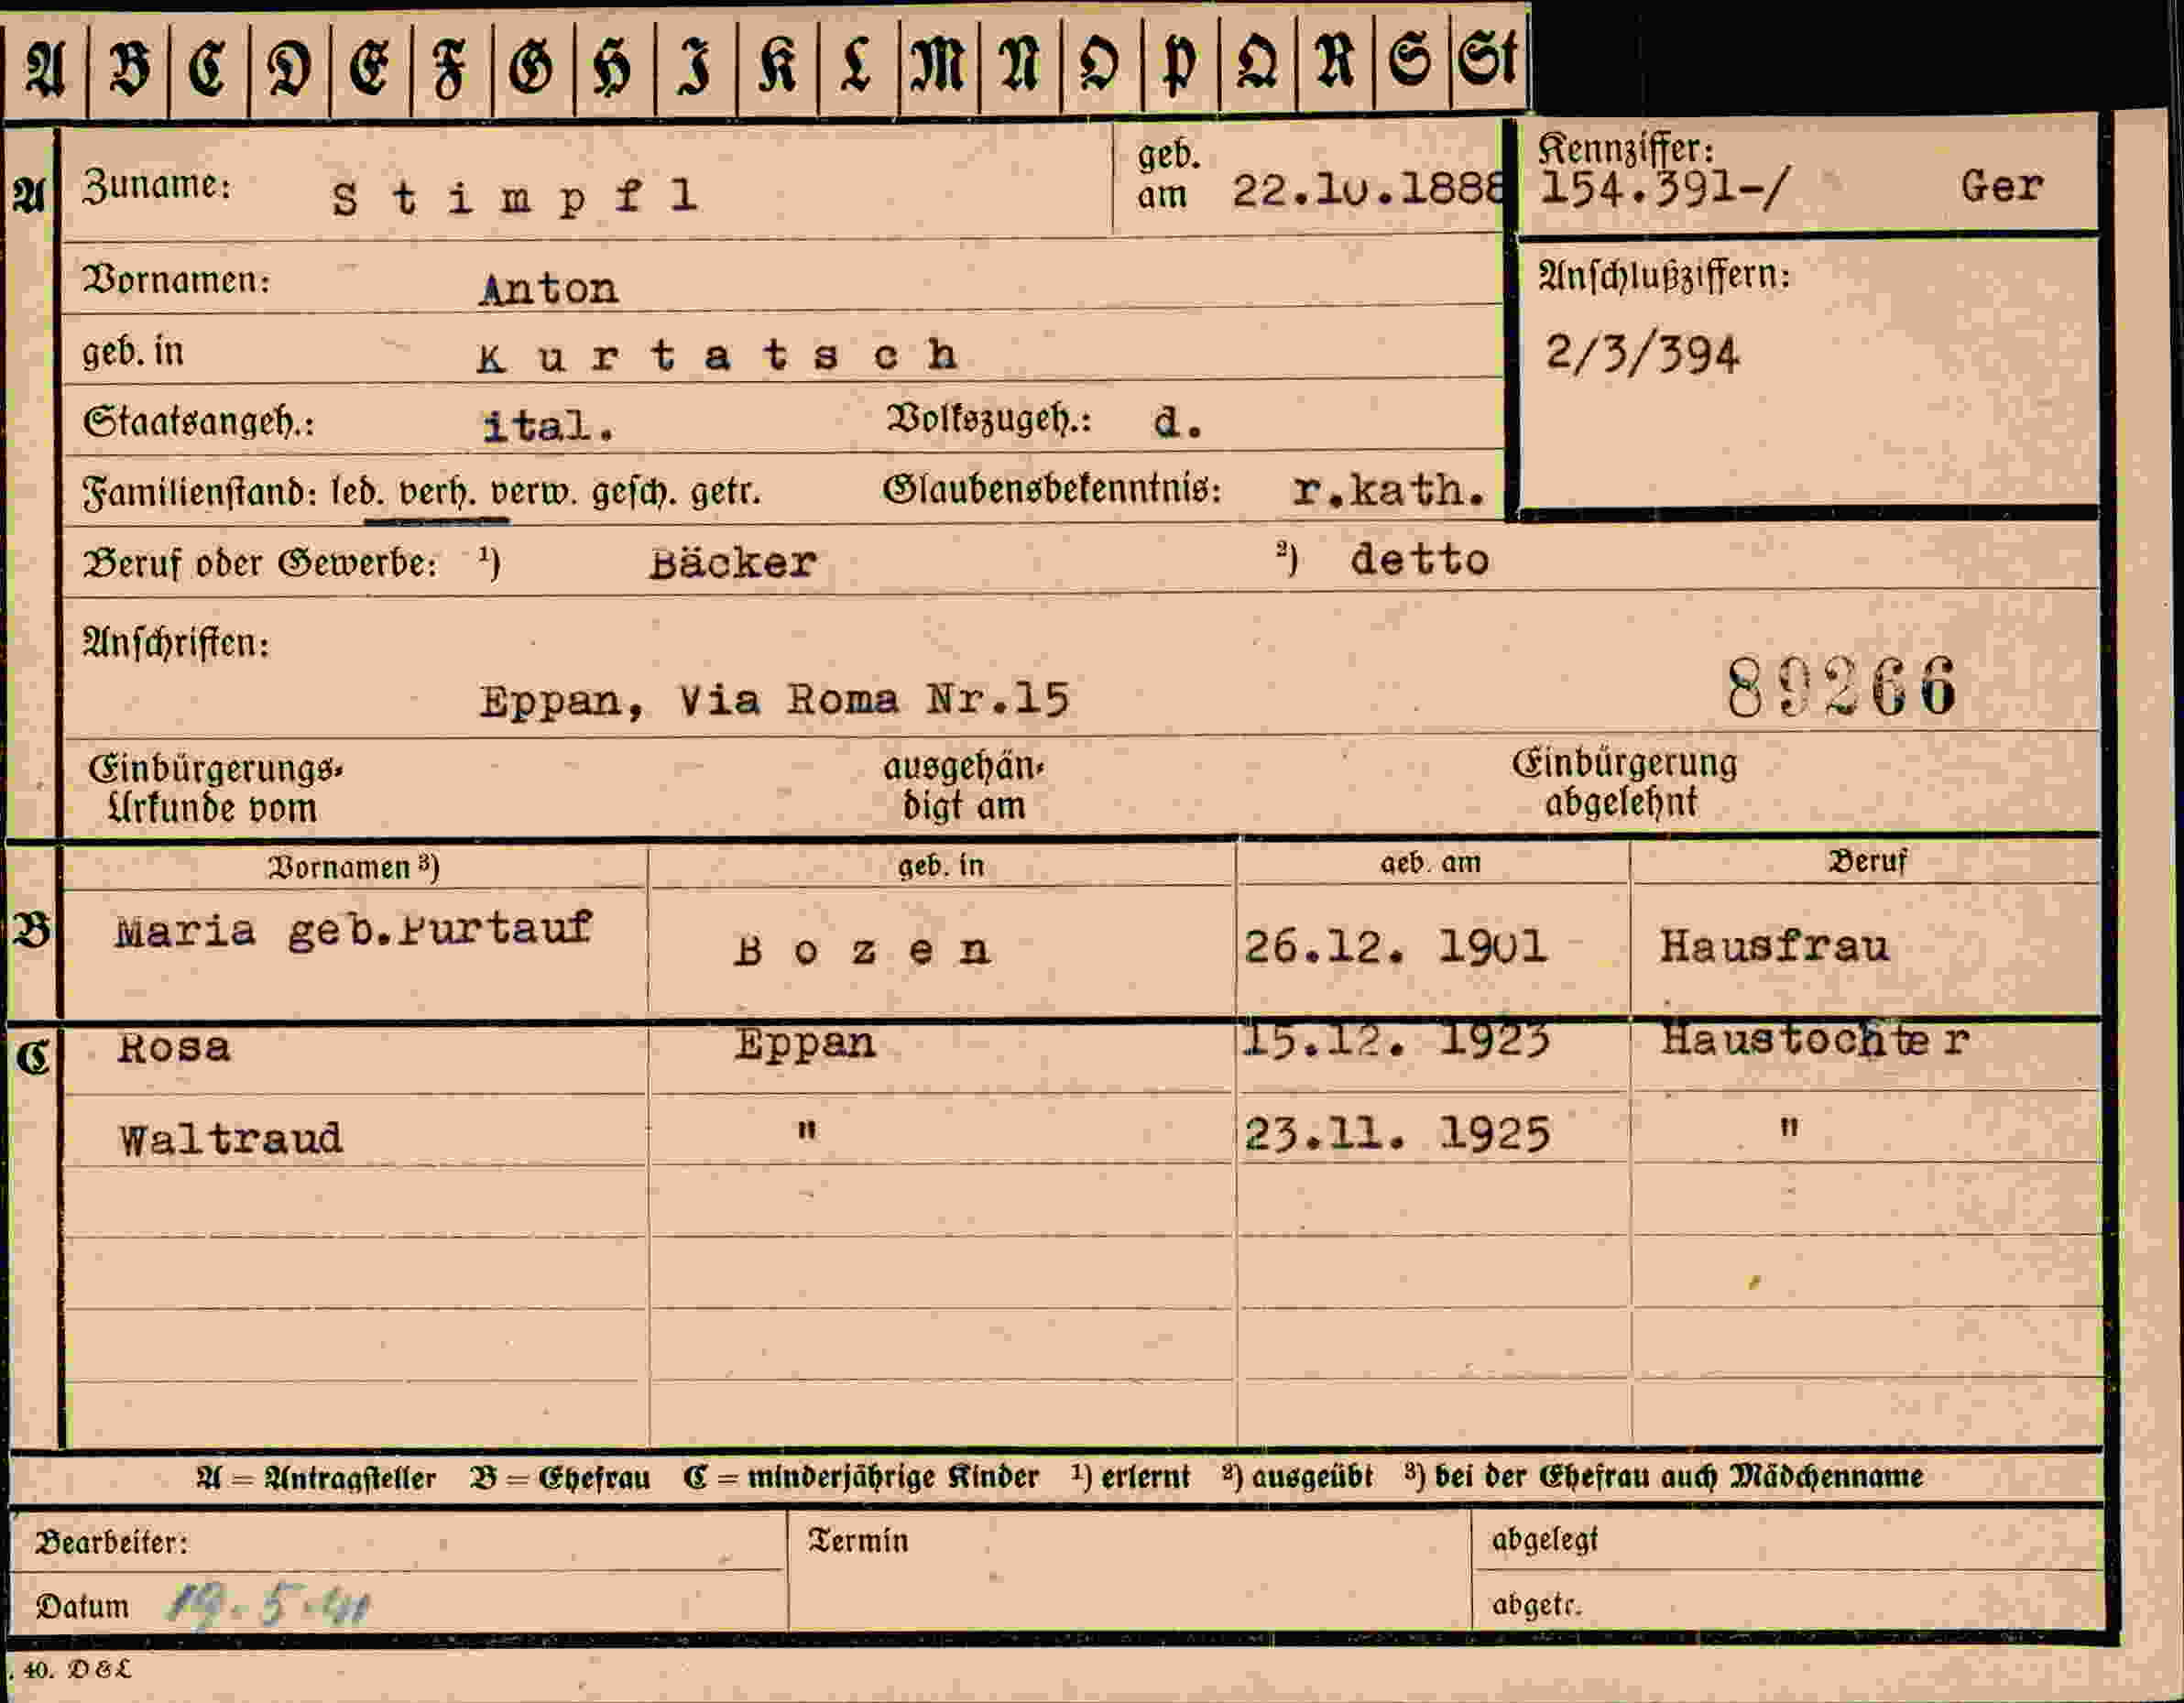 A B C D E F G H I K L M N O P Q R S St
A Zuname: Stimpfl geb. am 22.10.1888 Kennziffer: 154.391-/ Ger
Vornamen: Anton Anschlußziffern:
geb. in Kurtatsch 2/3/394
Staatsangeh.: ital. Volkszugeh.: d.
Familienstand: led. verh. verw. gesch. getr. Glaubensbekenntnis: r.kath.
Beruf oder Gewerbe: ¹) Bäcker ²) detto
Anschriften:
Eppan, Via Roma Nr.15 89266
Einbürgerungs- ausgehän- Einbürgerung
Urkunde vom digt am abgelehnt
Vornamen ³) geb. in geb. am Beruf
B Maria geb.Purtauf Bozen 26.12. 1901 Hausfrau
C Rosa Eppan 15.12. 1923 Haustochter
Waltraud " 23.11. 1925 "
A = Antragsteller B = Ehefrau C = minderjährige Kinder ¹) erlernt ²) ausgeübt ³) bei der Ehefrau auch Mädchenname
Bearbeiter: Termin abgelegt
Datum 19.5.41 abgetr.
. 40. D & L